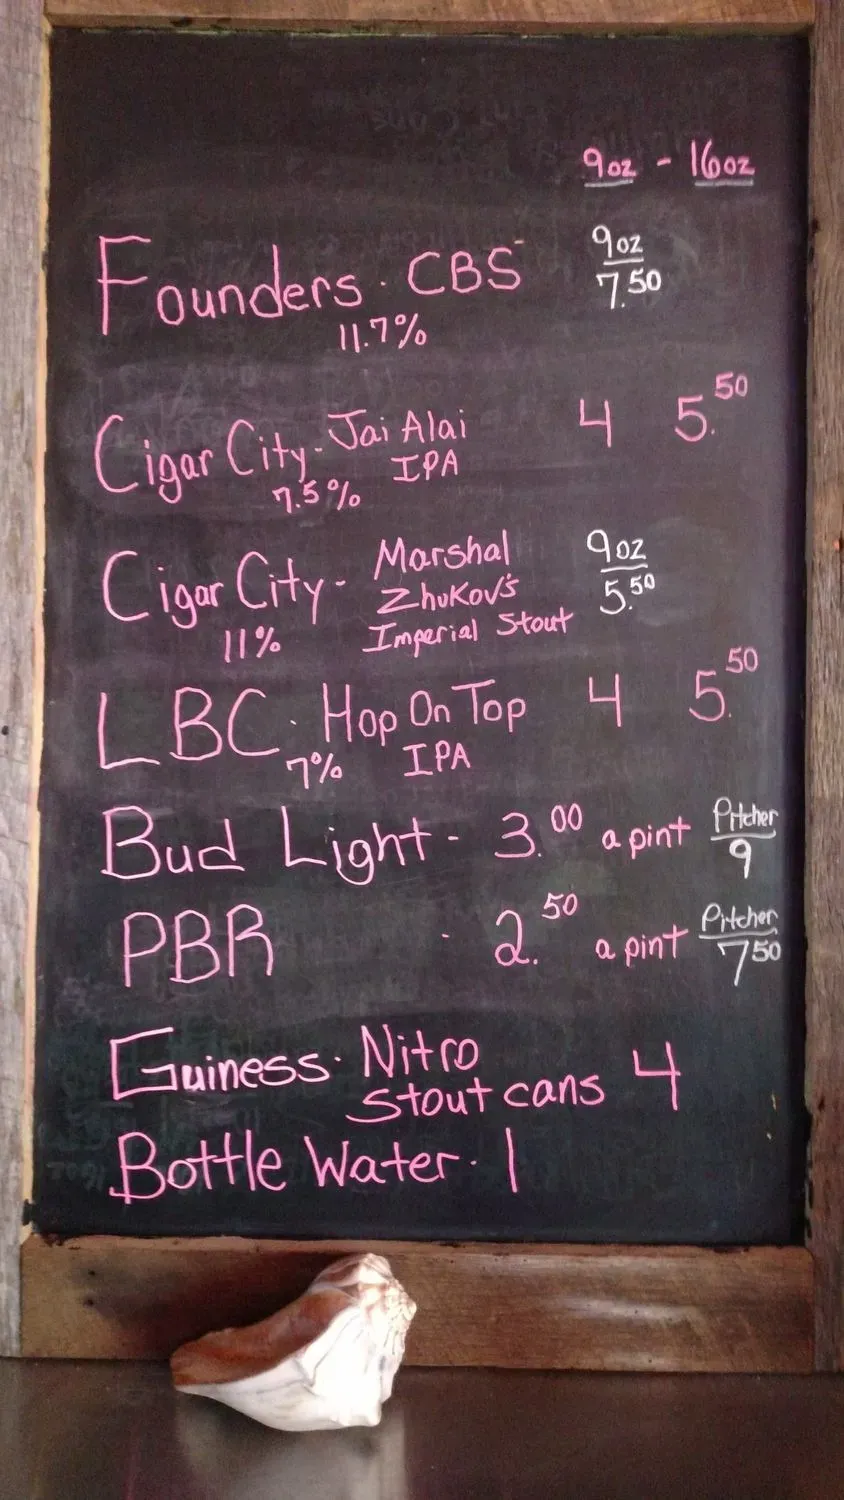 9oz - 16oz
Founders · CBS 9oz
11.7% 7.50
Cigar City - Jai Alai 4 5.50
7.5% IPA
Cigar City - Marshal 9oz
Zhukov's 5.50
11% Imperial Stout
LBC · Hop On Top 4 5.50
7% IPA
Bud Light - 3.00 a pint Pitcher
9
PBR · 2.50 a pint Pitcher
7.50
Guiness · Nitro 4
Stout cans
Bottle Water · 1